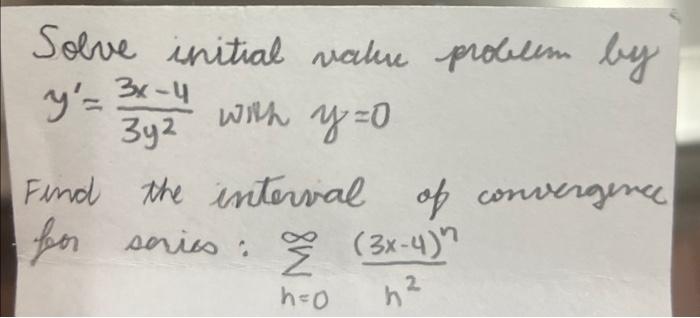 Solve initial value problem by
y' = (3x-4)/(3y²) with y=0
Find the interval of convergence
for series: ∑_{n=0}^{∞} (3x-4)^n / n²